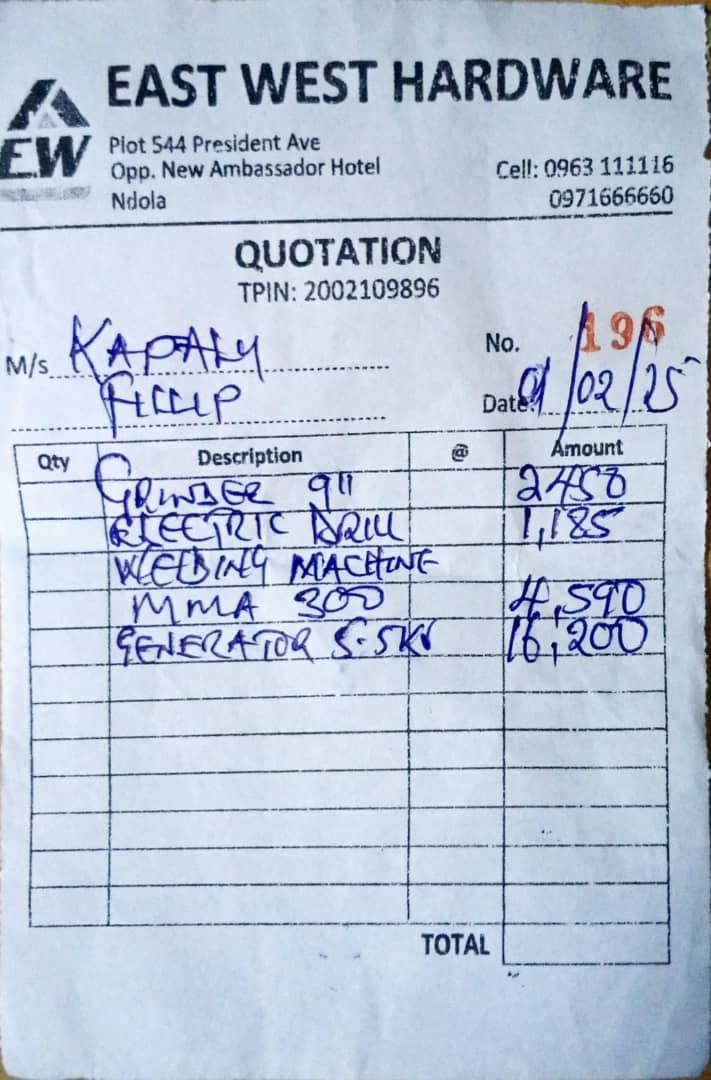 EAST WEST HARDWARE
EW
Plot 544 President Ave
Opp. New Ambassador Hotel
Ndola
Cell: 0963 111116
0971666660
QUOTATION
TPIN: 2002109896
M/s KAPALY
FILLIP
No. 196
Date: 01/02/25
Qty Description @ Amount
GRINDER 9" 2450
ELECTRIC DRILL 1,185
WELDING MACHINE
MMA 300 4,590
GENERATOR 5.5KV 16,200
TOTAL